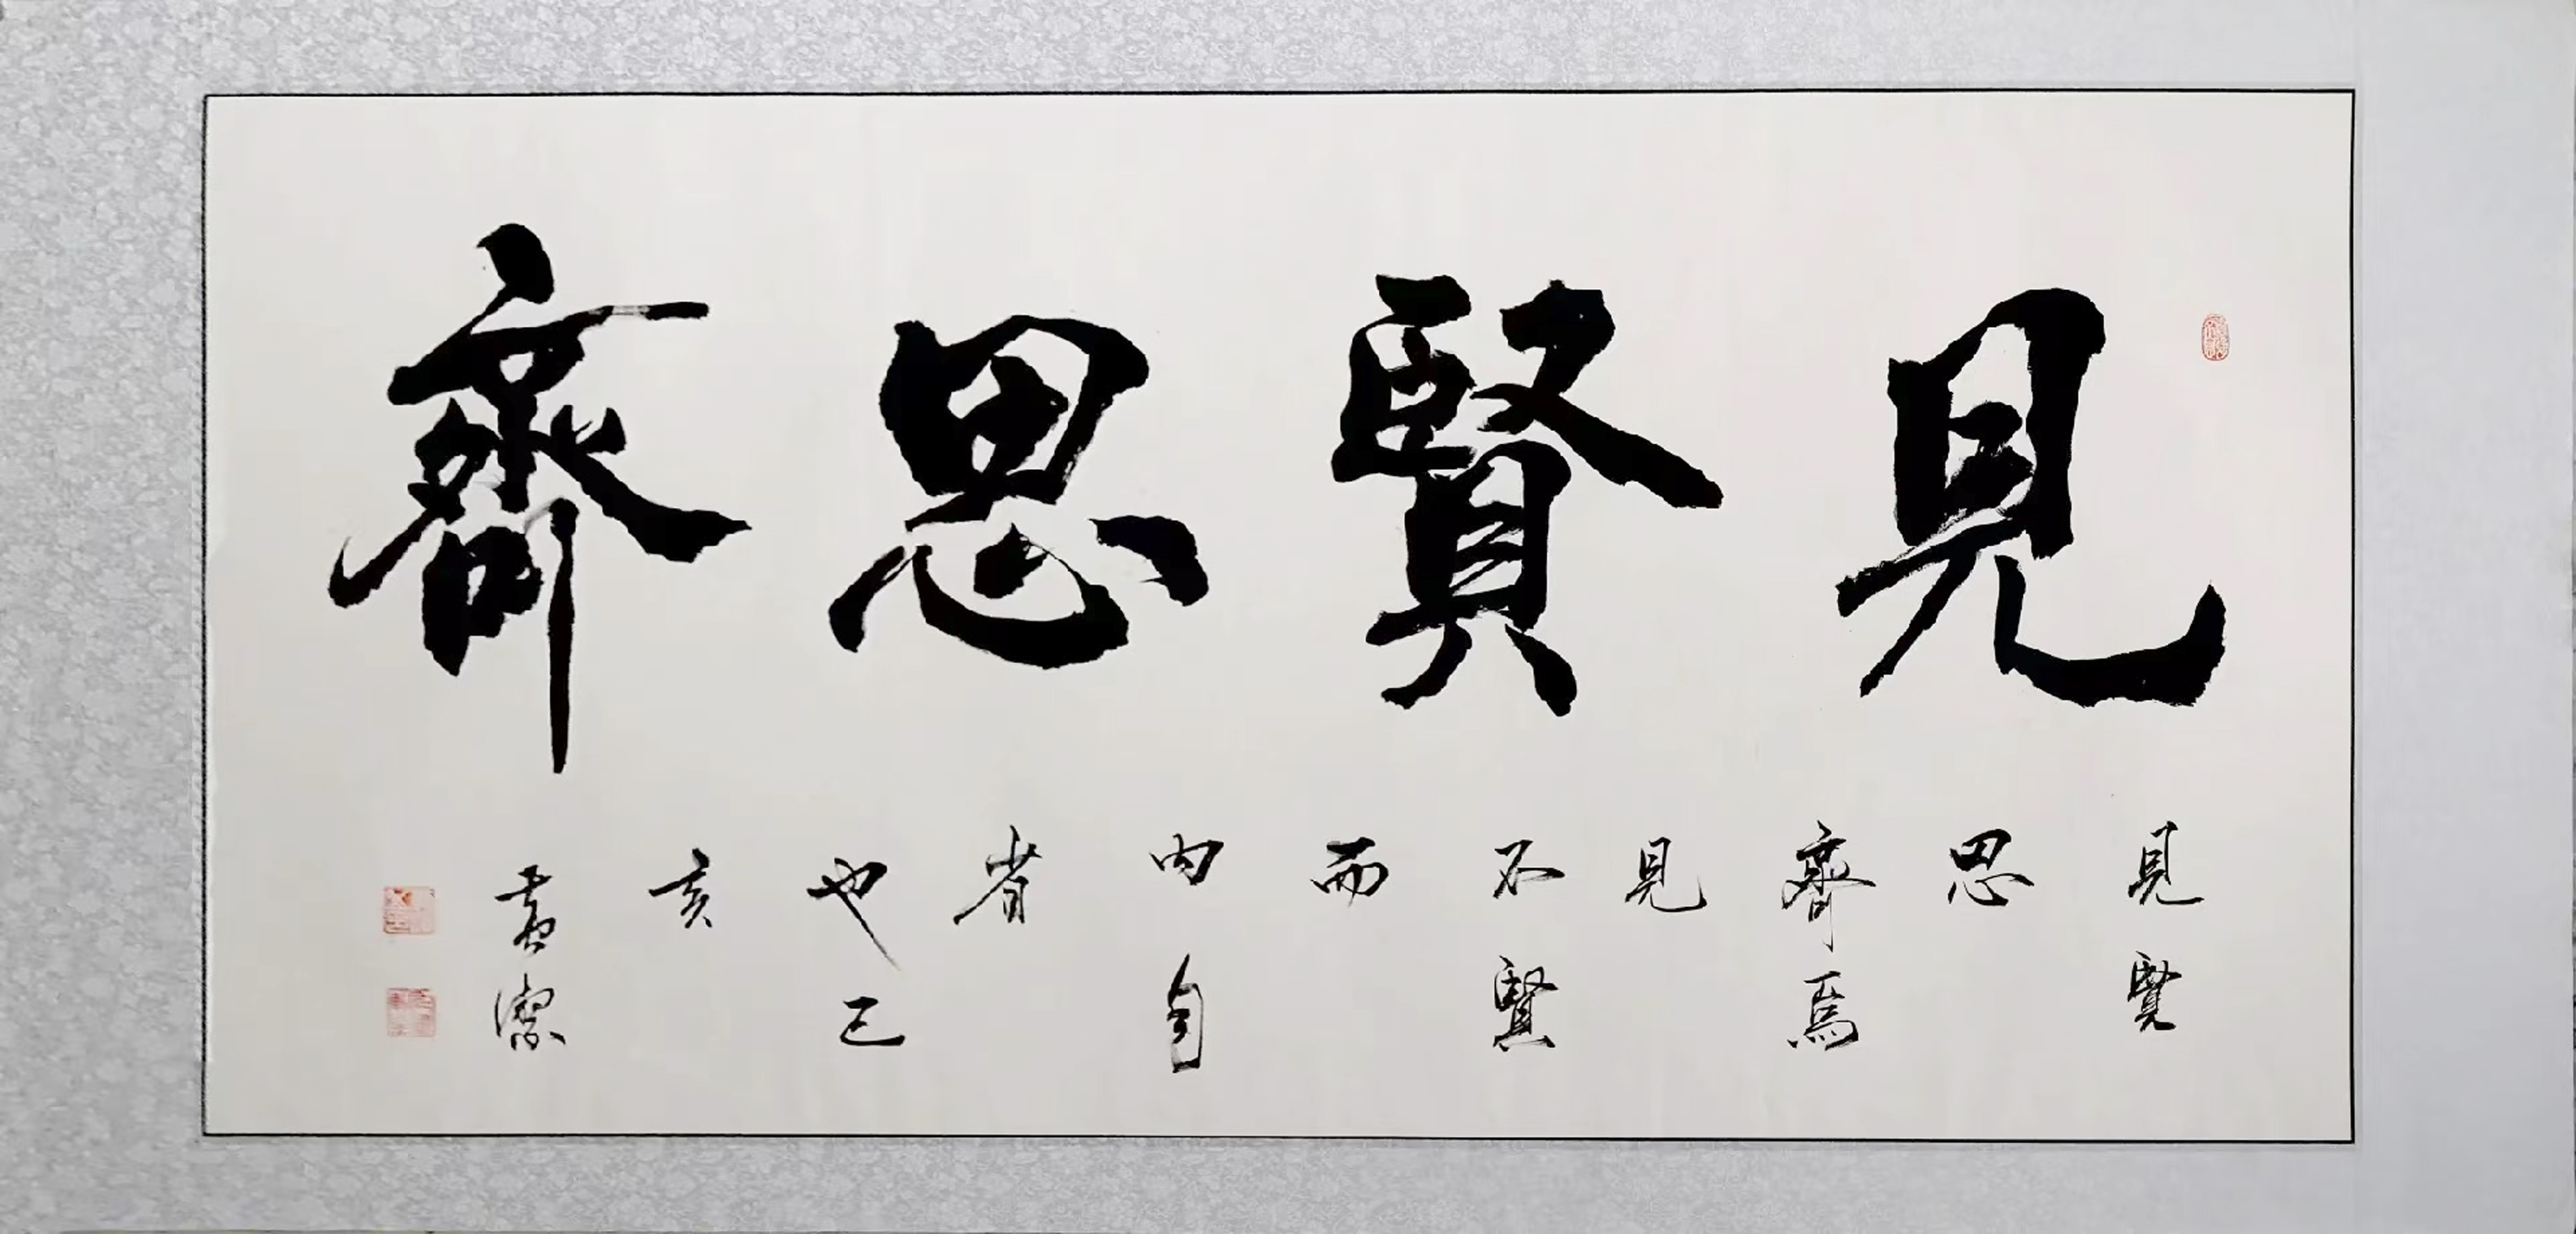 見賢思齊
見賢
思
齊焉
見
不賢
而
内自
省
也己
亥
孟潔